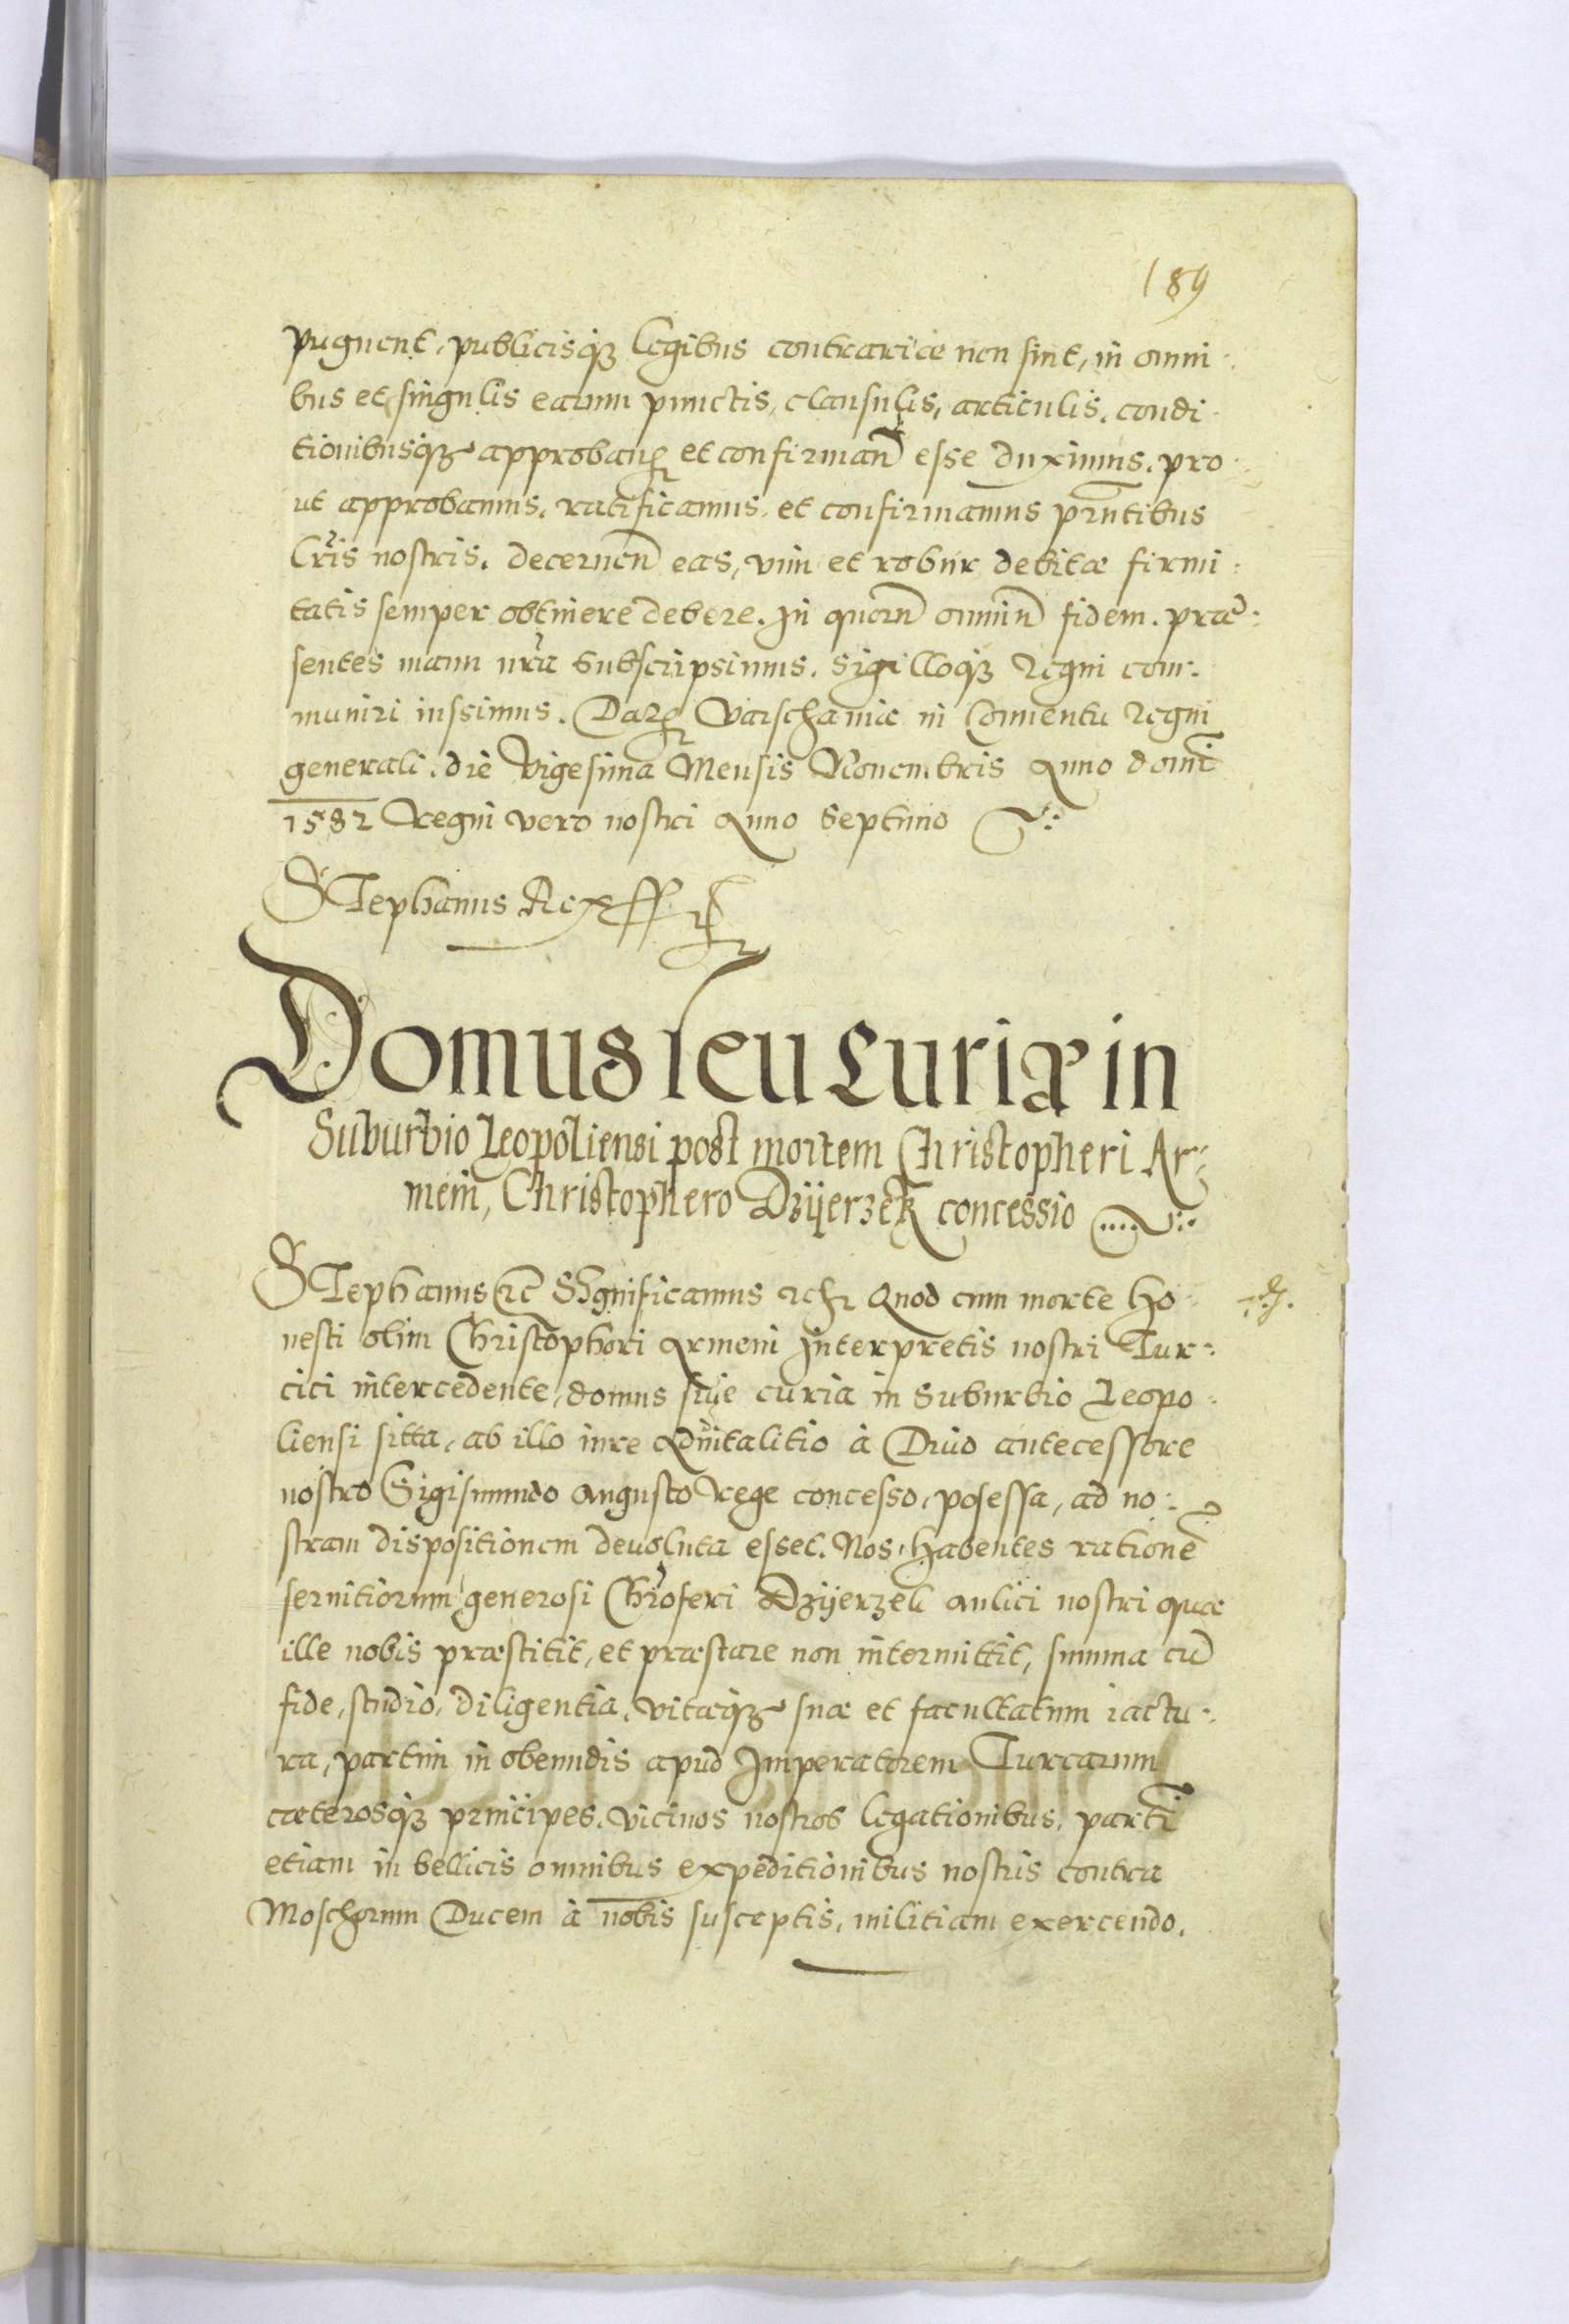 189
pugnent, publicisq3 legibus contrariæ non sint, in omni:
bus et singulis earum punctis, clausulis, articulis, condi:
tionibusq3 approbanꝝ et confirmand̄ esse duximus, pro:
ut approbamus, ratificamus, et confirmamus pn̄tibus
Lr̄is nostris. decernen̄ eas, vim et robur debitæ firmi:
tatis semper obtinere debere. In quorū omniū fidem. præ:
sentes manu nr̄a subscripsimus. Sigilloq3 Regni com:
muniri iussimus. Datꝝ Varschaviæ in Conventu Regni
generali. die Vigesima Mensis Novembris Anno domī
1582 Regni vero nostri Anno Septimo
Stephanus Rex
Domus seu Curiæ in
Suburbio Leopoliensi post mortem Christopheri Ar:
meni, Christophero Dzÿerzek concessio
Stephanus ꝛc Significamus ꝛc Quod cum morte Ho:
nesti olim Christophori Armeni Interpretis nostri Tur:
cici intercedente, domus siue curia in Suburbio Leopo:
liensi sitta, ab illo iure Aduitalitio à Diuo antecessore
nostro Sigismundo Augusto Rege concesso, posessa, ad no:
stram dispositionem deuoluta esset. Nos, habentes rationē
seruitiorum generosi Chrõferi Dzÿerzek aulici nostri quæ
ille nobis præstitit, et præstare non intermittit, summa cū
fide, studio, diligentia, vitæq3 suæ et facultatum iactu:
ra, partim in obeundis apud Imperatorem Turcarum
cæterosq3 principes, vicinos nostros legationibus, partī
etiam in bellicis omnibus expeditionibus nostris contra
Moschorum Ducem à nobis susceptis, militiam exercendo.